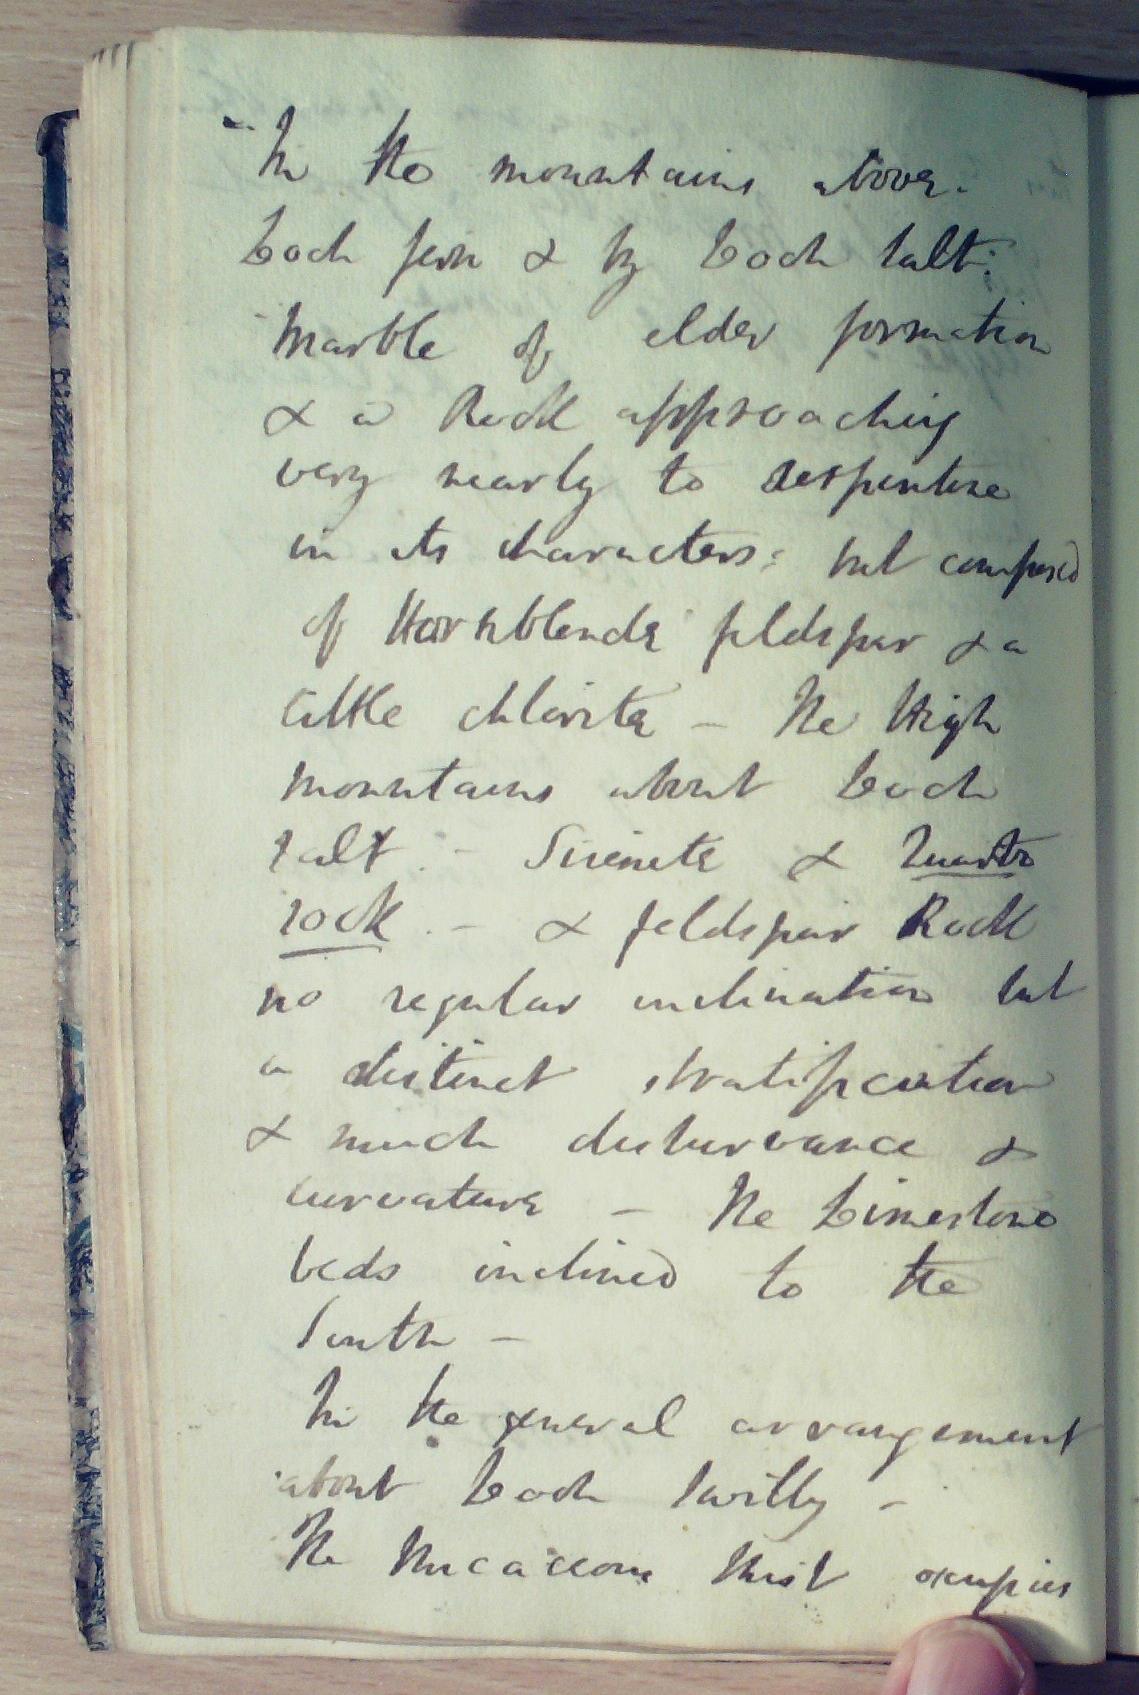 In the mountains above.
Loch fern & by Loch Salt:
Marble of elder formation
& a Rock approaching
very nearly to serpentine
in its characters: but composed
of Hornblende feldspar & a
little chlorite - The High
mountains about Loch
Salt - Sienite & Quartz
rock - & feldspar Rock
no regular inclination but
a distinct stratification
& much disturvance &
curvature - The Limestone
beds inclined to the
South -
In the general arrangement
about Loch Swilly -
The Micaceous Shist occupies